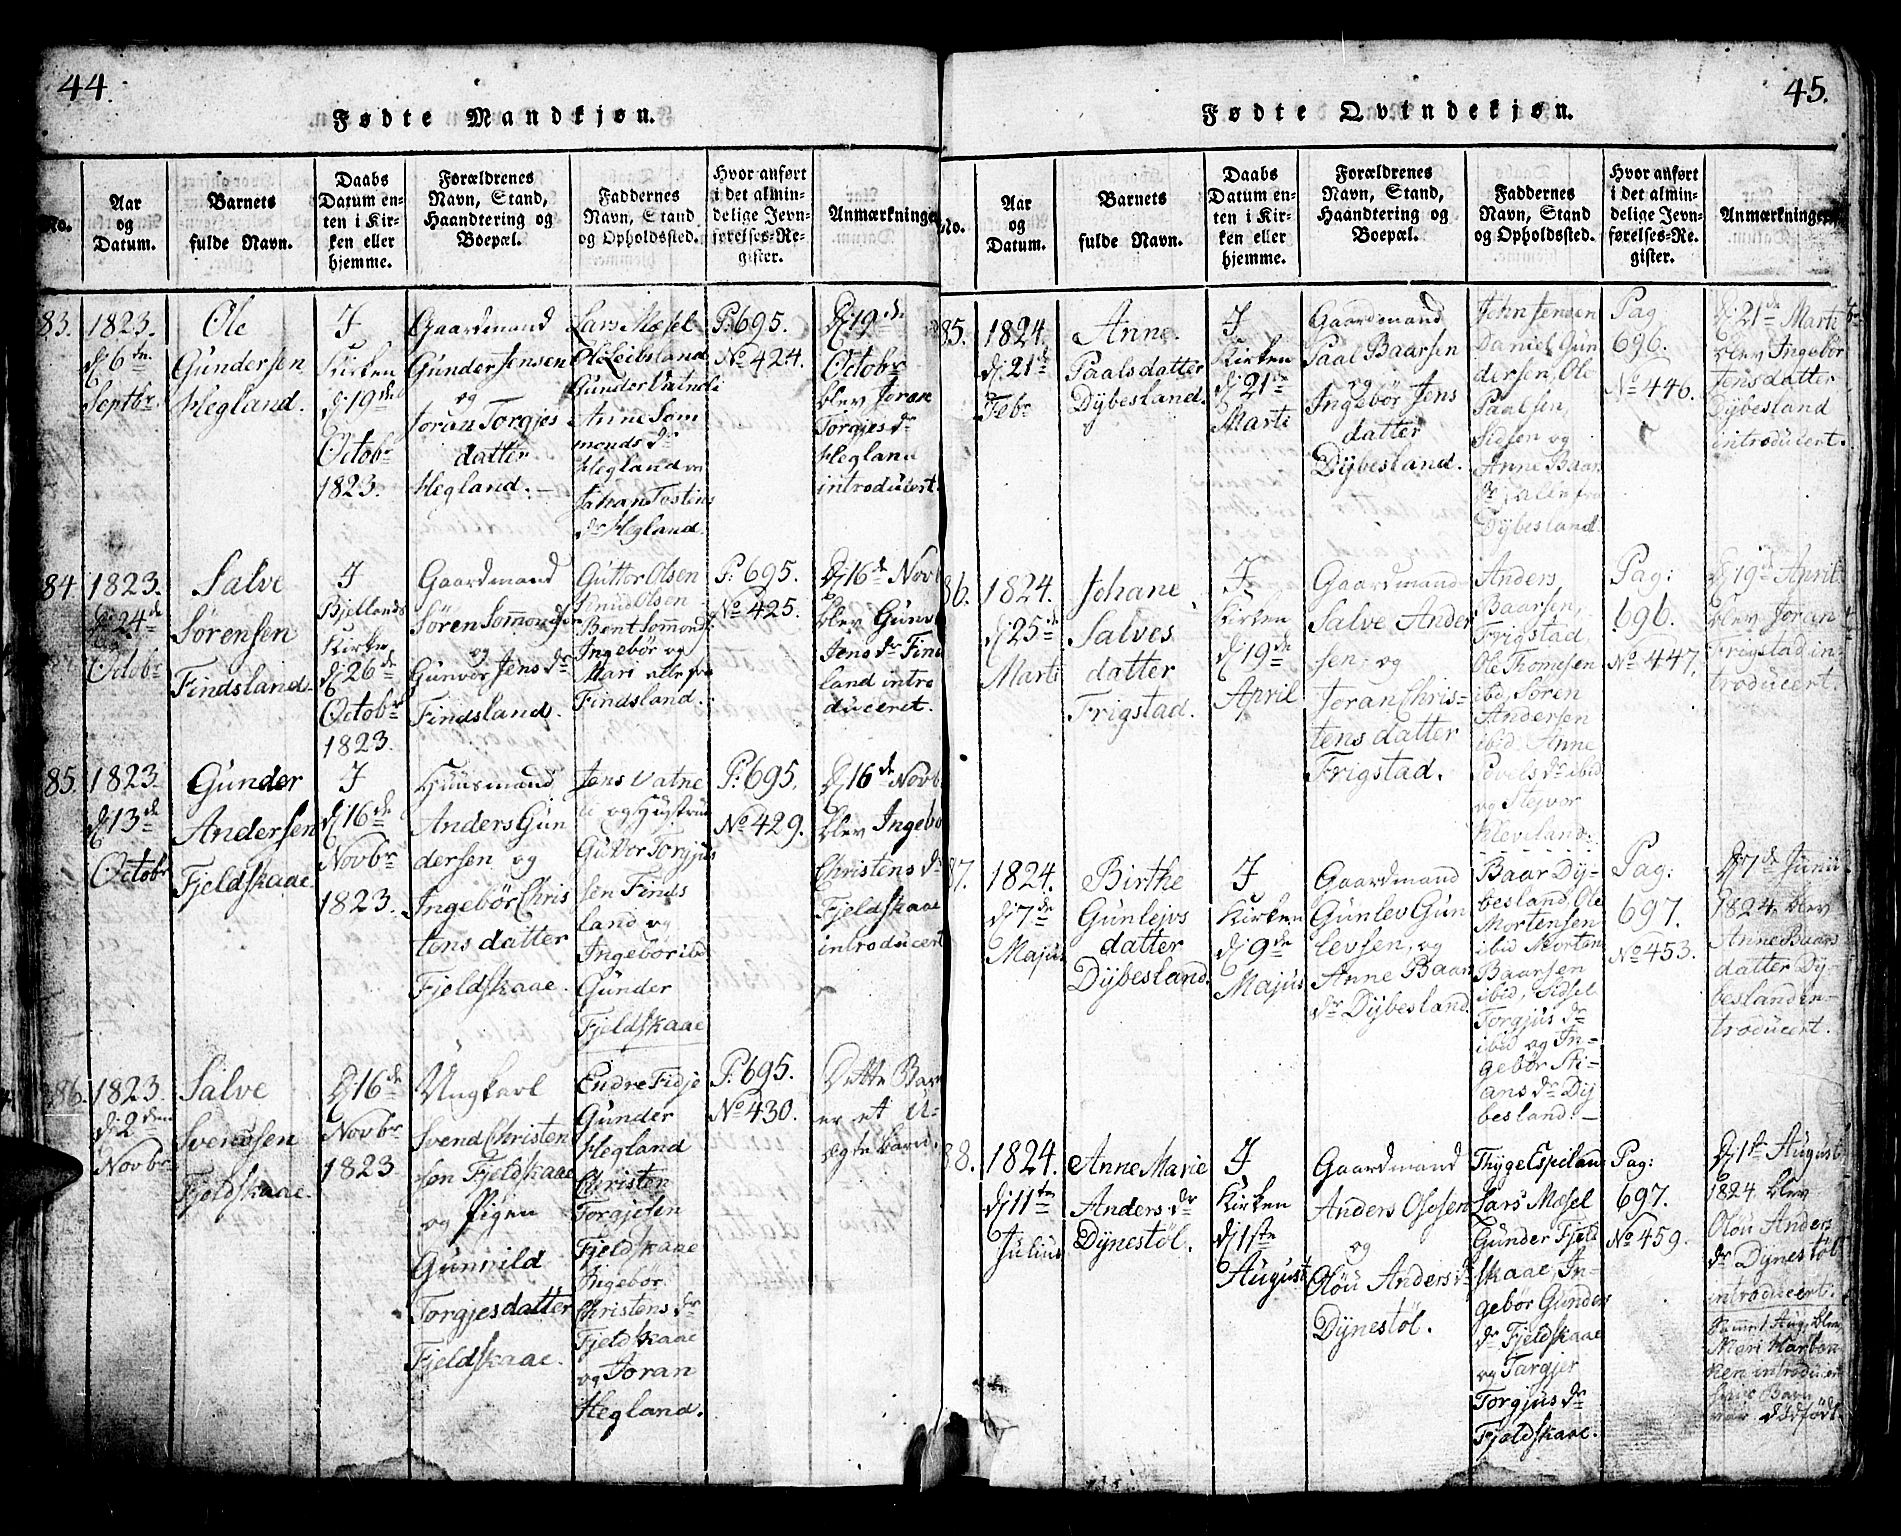 44.
Fødte Mandkjøn.
No.
Aar
og
Datum.
Barnets
fulde Navn.
Daabs
Datum en-
ten i Kir-
ken eller
hjemme.
Forældrenes
Navn, Stand,
Haandtering og
Boepæl.
Faddernes
Navn, Stand
og Opholdssted.
Hvor anført
i det almin-
delige Jevn-
førelses-Re-
gister.
Anmærkninger
83.
1823.
d 6de
Septbr
Ole
Gundersen
Hegland.
I
Kirken
d 19de
Octobr
1823.
Gaardmand
Gunder Jensen
og
Joran Torgjes
datter
Hegland.
Lars Mosel
Ole Leibsland
Gunder Vatneli
Anne Som
monds dr
Hegland
Johan Tostins
dr Hegland.
P. 695.
No 424.
D 19de
Octobr
blev Joran
Torgjes dr
Hegland
introducert.
84.
1823.
d 24de
Octobr
Salve
Sørensen
Findsland
I
Bjellands
Kirke
d 26de
Octobr
1823.
Gaardmand
Sören Sommonds
og
Gunvor Jens dr
Findsland.
Guttor Olsen
Knud Olsen
Bent Sommonds
Ingebör og
Mari alle fra
Findsland.
P. 695.
No 425.
D 16de Novb
blev Gunv
Jens dr Find
land intro
duceret.
85.
1823.
d 13de
Octobr
Gunder
Andersen
Fjeldskaae.
I
d 16de
Novbr
1823.
Huusmand
Anders Gun
dersen og
Ingebör Chris
tens datter
Fjeldskaae.
Jens Vatne
li og Hustru
Guttor Torgjus
sen Finds
land og
Ingebör ibd
Gunder
Fjeldskaae
P. 695.
No 429.
D 16de Novb
blev Ingebo
Christens dr
Fjeldskaae
introducert
86.
1823.
d 2den
Novbr
Salve
Svendsen
Fjeldskaae.
D 16de
Novbr
1823
Ungkarl
Svend Christen
sen Fjeldskaae
og Pigen
Gunnild
Torgjesdatter
Fjeldskaae.
Endre Fidje
Gunder
Hegland
Christen
Torgjesen
Fjeldskaae
Ingebör
Christens dr
Fjeldskaae
og Joran
Hegland.
P. 695.
No 430.
Dette Bar
er et U-
ægte barn.
45.
Fødte Qvindekjøn.
No.
Aar
og
Datum.
Barnets
fulde Navn.
Daabs
Datum en-
ten i Kir-
ken eller
hjemme.
Forældrenes
Navn, Stand,
Haandtering og
Boepæl.
Faddernes
Navn, Stand
og Opholdssted.
Hvor anført
i det almin-
delige Jevn-
førelses-Re-
gister.
Anmærkninger
85.
1824.
d 21de
Febr
Anne
Paalsdatter
Dÿbesland.
I
Kirken
d 21de
Marti
Gaardmand
Paal Baarsen
og
Ingebör Jens
datter
Dÿbesland.
John Jensen
Daniel Gun
dersen, Ole
Paalsen,
Sidsen og
Anne Baars
dr alle fra
Dÿbesland
Pag
696.
No 446.
D 21de Marti
blev Ingebör
Jensdatter
Dÿbesland
introducert.
86.
1824.
d 25de
Marti
Johane
Salves
datter
Frigstad.
I
Kirken
d 19de
April
Gaardmand
Salve Ander
sen, og
Joran Chris-
tens datter
Frigstad.
Anders
Baarsen,
Frigstad
Ole Thomesen
ibid, Soren
Andersen
ibid. Anne
Povels dr ibid
og Stejvor
Kleveland.
Pag:
696.
No 447.
D 19de April
blev Joran
Frigstad in-
troducert.
87.
1824.
d 7de
Majus
Birthe
Gunlejvs
datter
Dÿbesland.
I
Kirken
d 9de
Majus
Gaardmand
Gunlev Gun
levsen, og
Anne Baars
dr Dÿbesland
Baar Dÿ-
besland, Ole
Mortensen
ibid Morten
Baarsen
ibid, Sidsel
Torgjus dr
ibid og In-
gebör Sti-
ans dr Dÿ
besland.
Pag:
697.
No 453.
D 7de Junii
1824 blev
Anne Baars
datter Dÿ-
besland in-
troducert.
88.
1824.
d 11te
Julius
Anne Marie
Anders dr
Dÿnestöl.
I
Kirken
d 1ste
August
Gaardmand
Anders Olsen
og
Olöu Anders dr
Dÿnestöl.
Thÿgel Espeland
Lars Mosel
Gunder Fjeld
skaae, In-
gebör Gunders
dr Fjeldskaae
og Targjer
Torgjus dr
Fjeldskaae.
Pag:
697.
No 459.
D 1st August
1824 blev
Olöu Anders
dr Dÿnestöl
introducert.
Mari Harbon
introducert
Barn
var dödfödt.